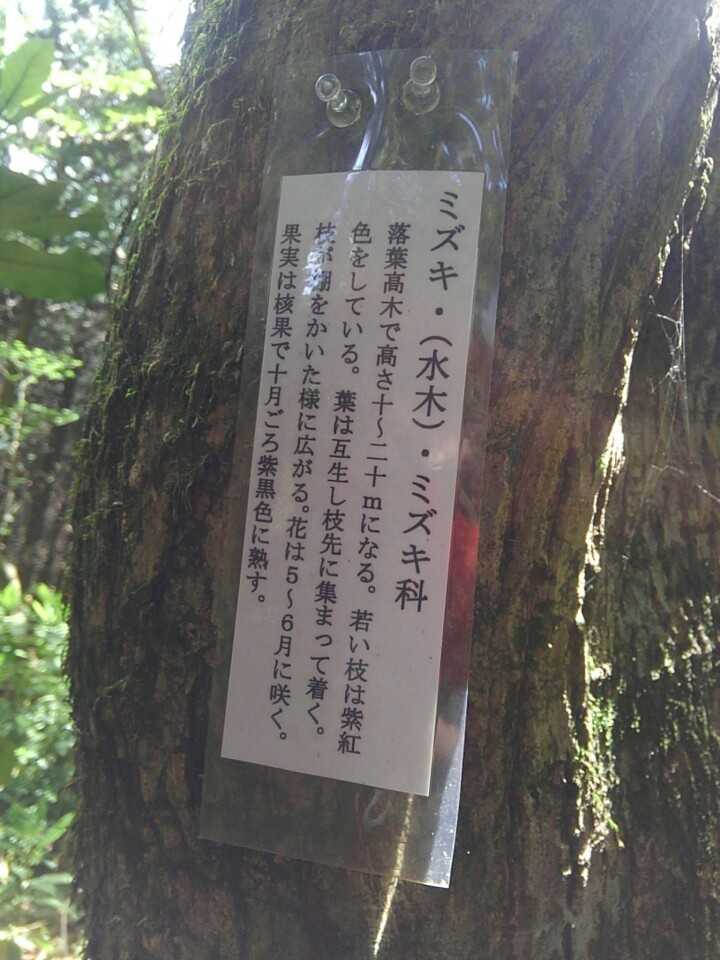 ミズキ・(水木)・ミズキ科
落葉高木で高さ十～二十mになる。若い枝は紫紅
色をしている。葉は互生し枝先に集まって着く。
枝が棚をかいた様に広がる。花は5～6月に咲く。
果実は核果で十月ごろ紫黒色に熟す。